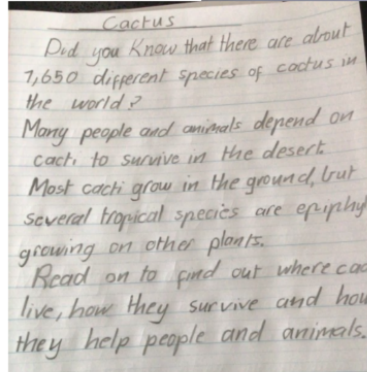 Cactus
Did you Know that there are about
1,650 different species of cactus in
the world?
Many people and animals depend on
cacti to survive in the desert.
Most cacti grow in the ground, but
several tropical species are epiphy
growing on other plants.
Read on to find out where cac
live, how they survive and how
they help people and animals.